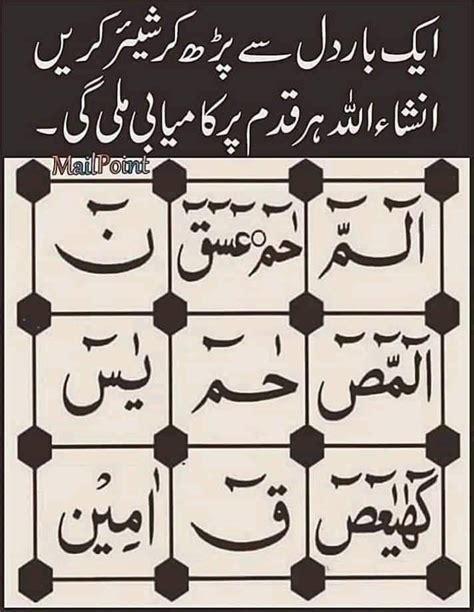 ایک بار دل سے پڑھ کر شیئر کریں
انشاء اللہ ہر قدم پر کامیابی ملی گی۔
MailPoint
الٓمّٓ حٰمٓ عٓسٓقٓ نٓ
الٓمّٓصٓ حٰمٓ یٰسٓ
کٓھٰیٰعٓصٓ قٓ اٰمِیْن